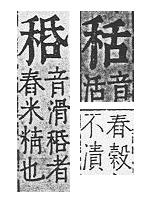 秳
音
活
舂穀
不潰
音滑者
舂米精也